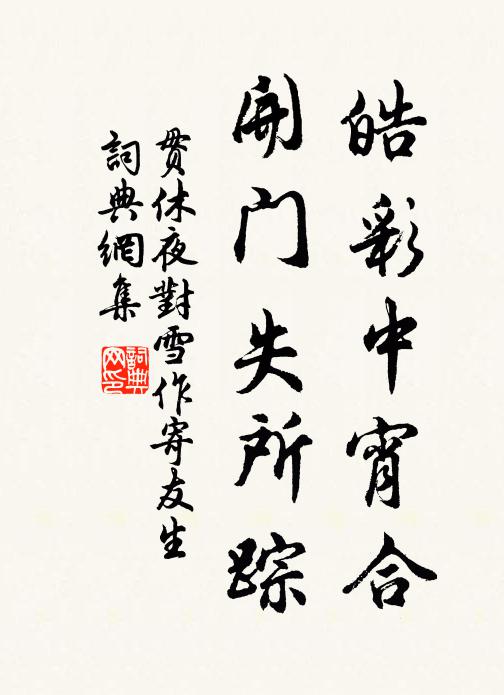 皓彩中宵合
開门失所踪
贯休夜對雪作寄友生
詞典網集
詞典网印